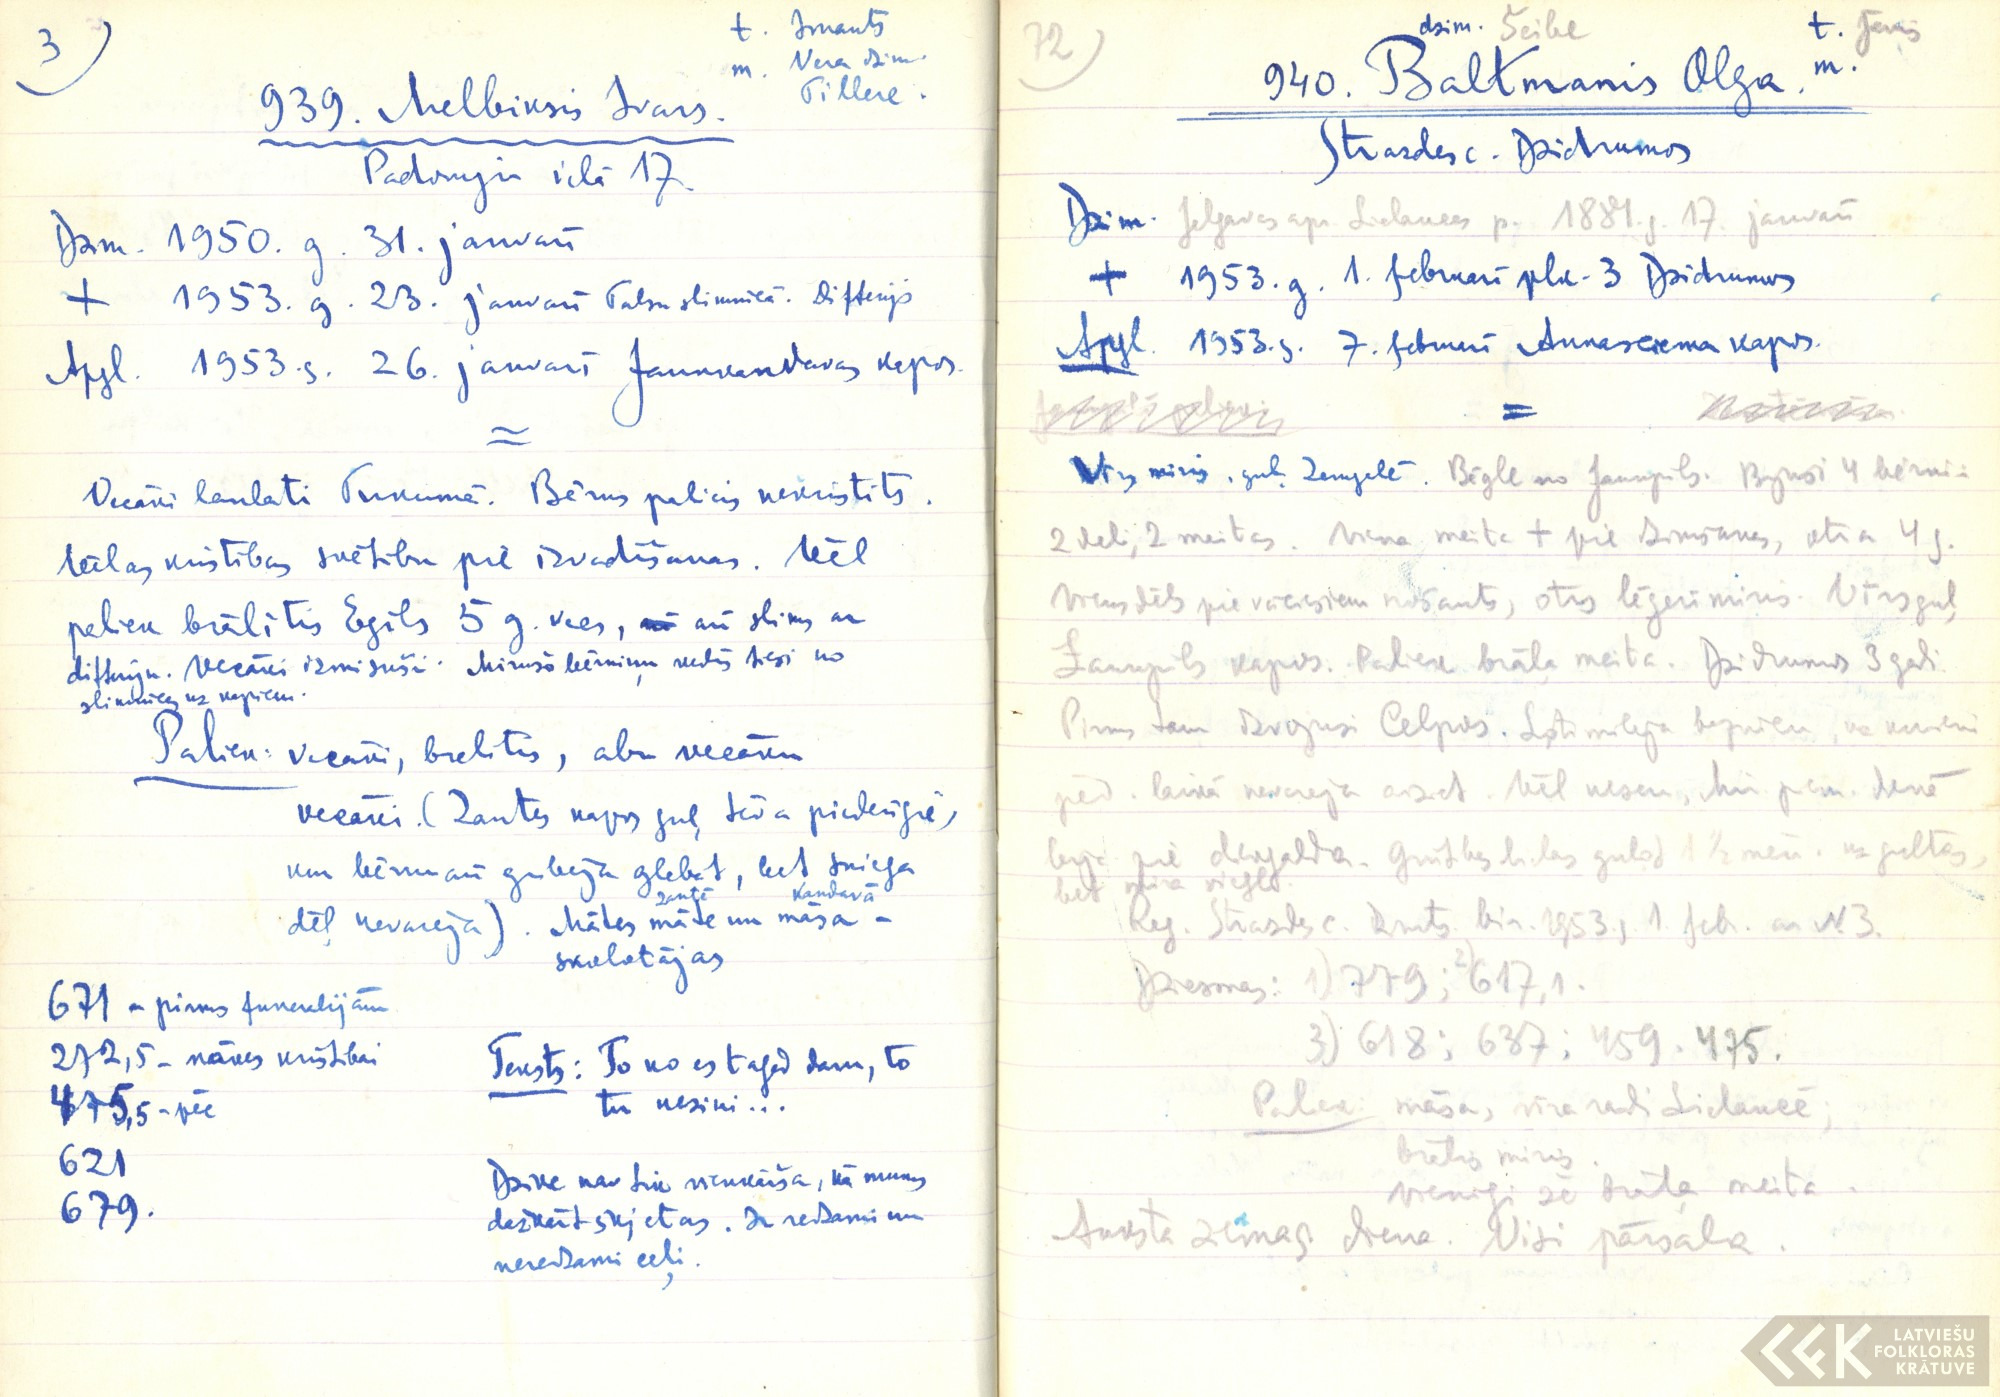 3)
t. Imants
m. Vera dzim.
Tillere.
939. Melbiksis Ivars.
Padomju ielā 17.
Dzim. 1950. g. 31. janvārī
+ 1953. g. 23. janvārī Talsu slimnīcā. Difterijs
Apgl. 1953. g. 26. janvārī Jaunkandavas kapos.
=
Vecāki laulāti Tukumā. Bērns palicis nekristīts.
Vēlas kristības svētību pie izvadīšanas. Vēl
paliek brālītis Egils 5 g. vecs, arī slims ar
difteriju. Vecāki izmisuši. Mirušo bērniņu vedīs tieši no
slimnīcas uz kapiem.
Paliek: vecāki, brālītis, abu vecāku
vecāki. (Zantes kapos guļ tēva piederīgie,
kur bērnu arī gribēja glabāt, bet sniega
dēļ nevarēja). Mātes māte un māsa -
zantē kandavā
skolotājas
671 - pirms funerālijām
272,5 - nākas kristībai
475,5 - pēc
621
679.
Teksts: To ko es tagad daru, to
tu nezini...
Dzīve nav tik vienkārša, kā mums
dažkārt šķietas. Ir redzami un
neredzami ceļi.
72)
dzim. Šeibe
t. Jānis
m.
940. Baltmanis Olga.
Strazdes c. Dzidrumos
Dzim. Jelgavas apr. Lielauces p. 1881. g. 17. janvārī
+ 1953. g. 1. februārī plk. 3 Dzidrumos
Apgl. 1953. g. 7. februārī Annasciema kapos.
=
Vīrs miris, guļ Zemgalē. Bēgle no Jaunpils. Bijuši 4 bērni:
2 dēli, 2 meitas. Viena meita + pie dzimšanas, otra 4 g.
Viens dēls pie vāciešiem nošauts, otrs lēģerī miris. Vīrs guļ
Jaunpils kapos. Paliek brāļa meita. Dzidrumos 3 gadi.
Pirms tam dzīvojusi Celpos. Ļoti mīlēja baznīcu, uz kurieni
pēd. laikā nevarēja aiziet. Vēl nesen,
bija pie dievgalda. Grūtības lielas guļot 1½ mēn. uz gultas,
bet mira viegli.
Reg. Strazdes c. Dzimts. bir. 1953. g. 1. feb. ar N 3.
Dziesmas: 1) 779; 2) 617,1.
3) 618; 637; 459. 475.
Paliek māsa, vīra radi Lielaucē;
brālis miris.
vienīgi šē brāļa meita.
Auksta ziemas diena. Visi pārsala.
LATVIEŠU
FOLKLORAS
KRĀTUVE